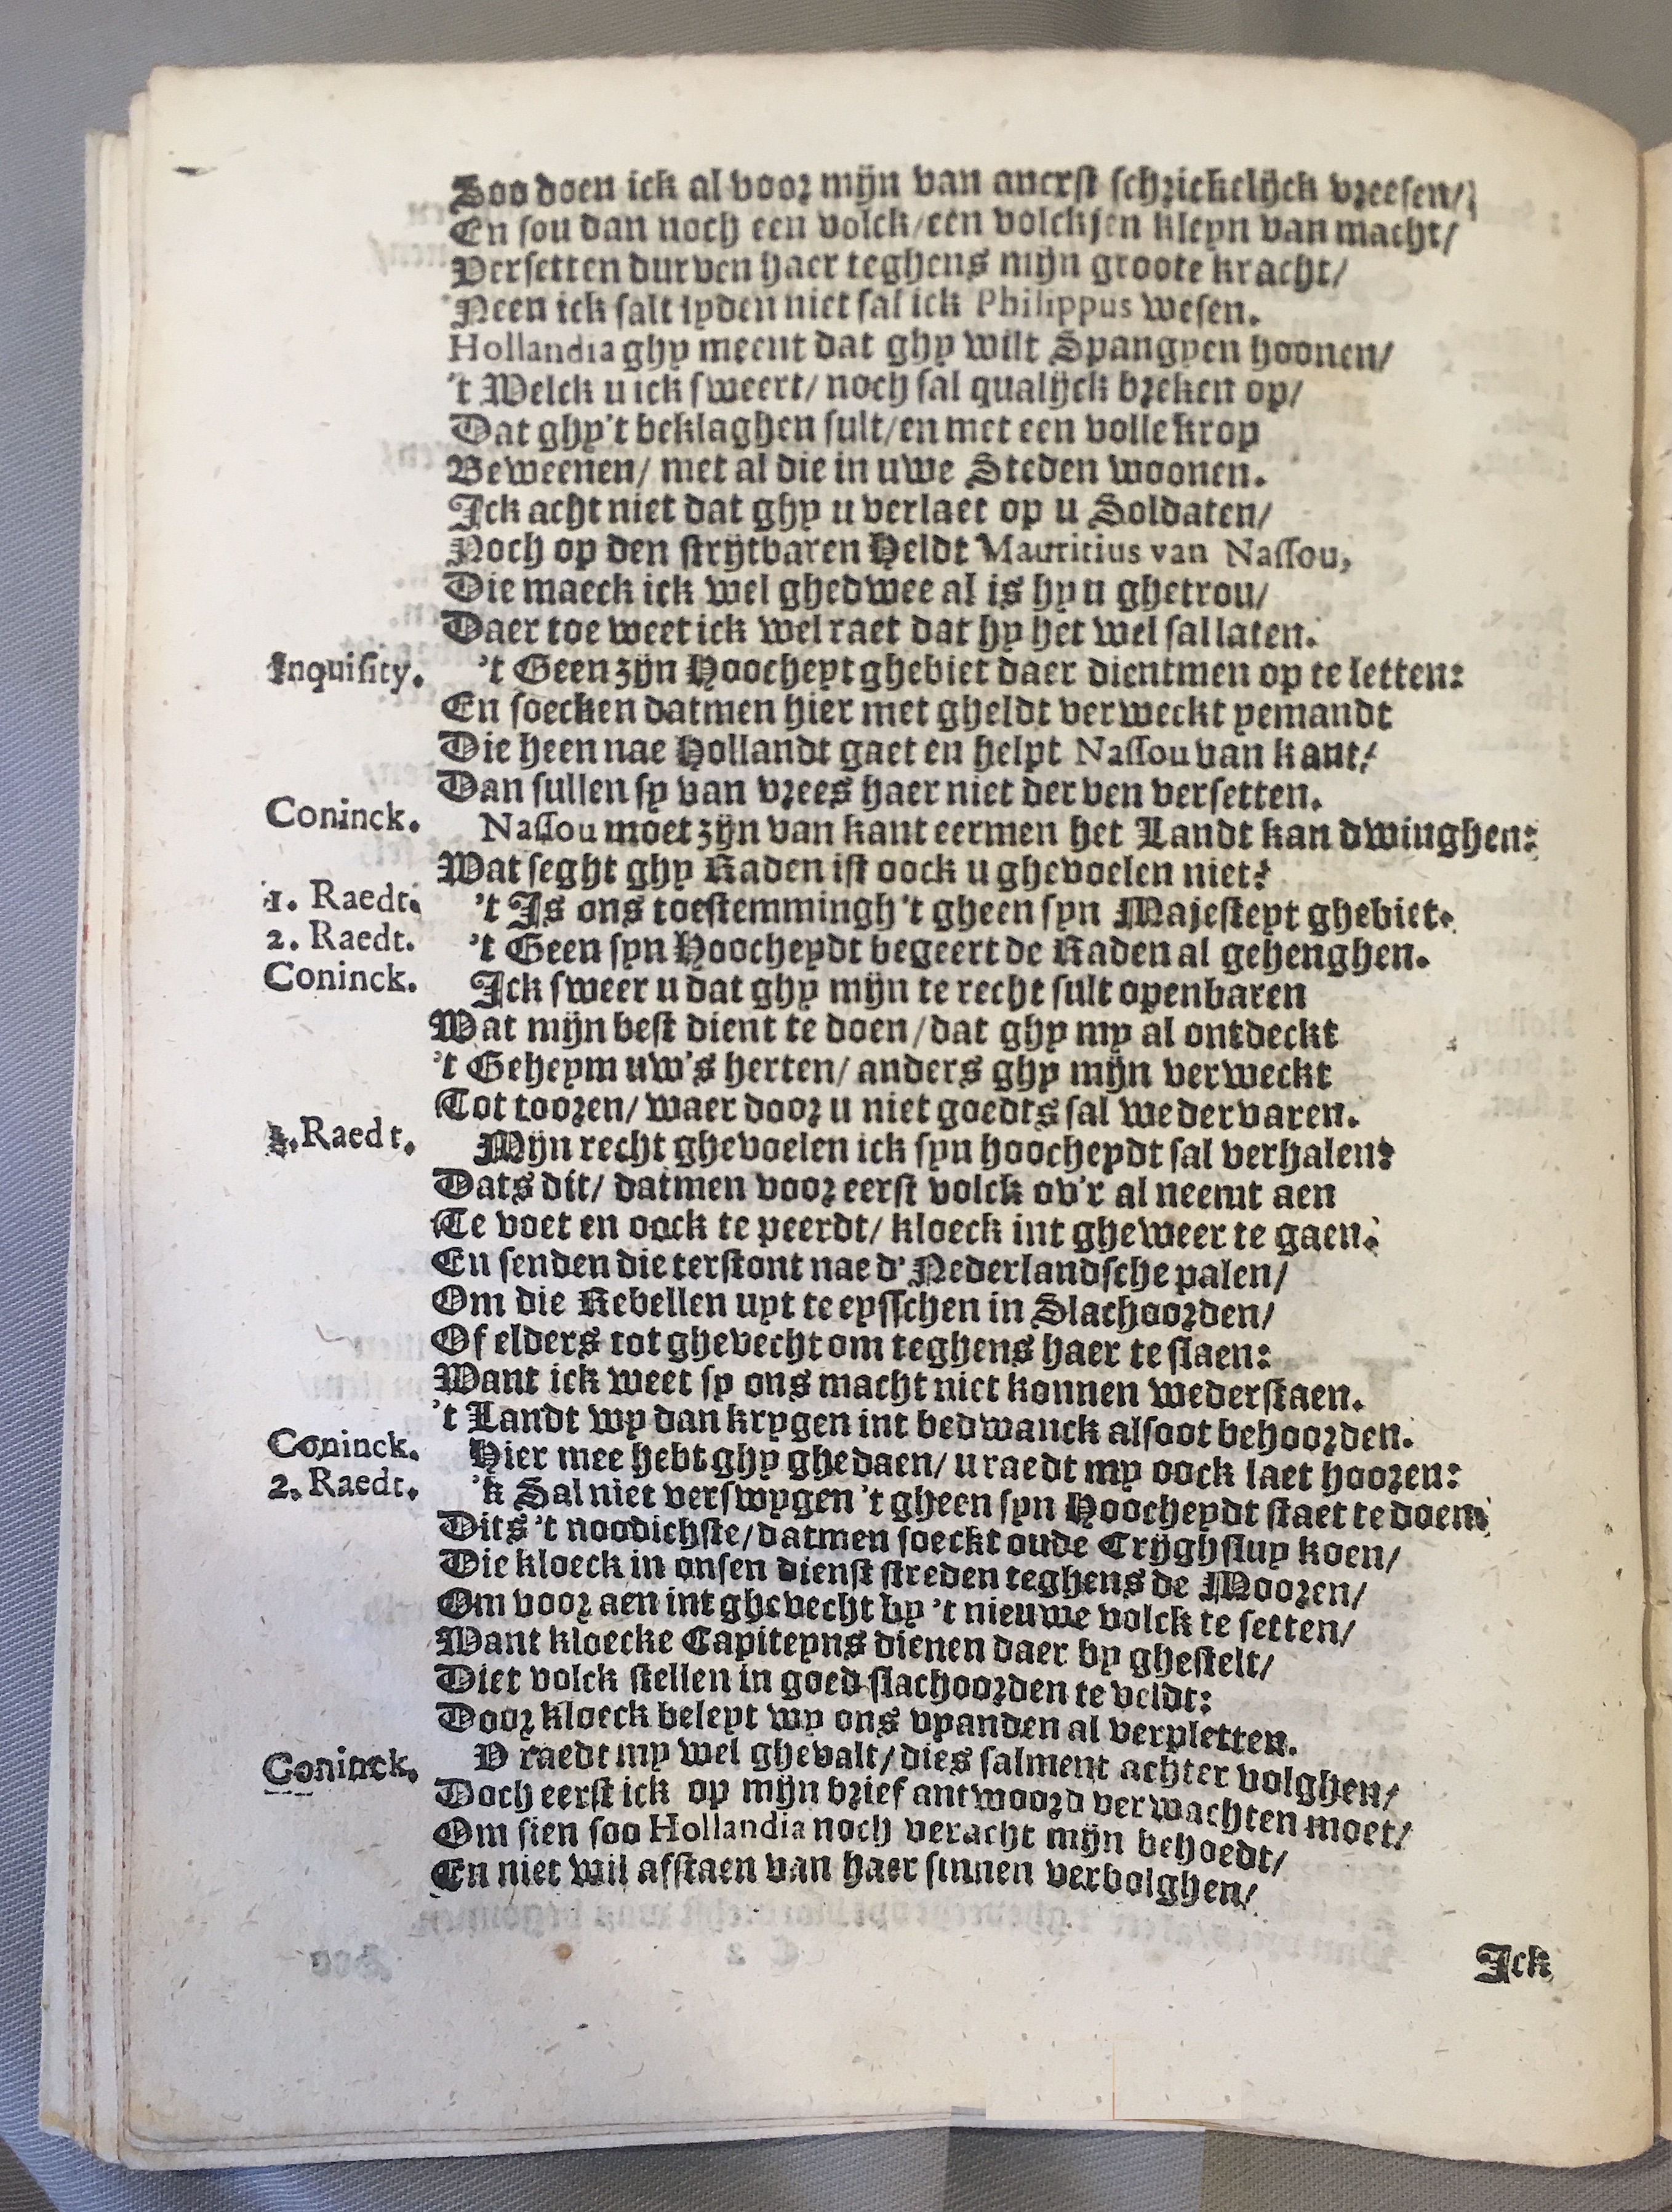 Soo doen ick al voor mijn van anerst schrickelijck vreesen/
En sou dan noch een volck/een volckjen kleyn van macht/
Versetten durven haer teghens mijn groote kracht/
Neen ick salt lyden niet sal ick Philippus wesen.
Hollandia ghy meent dat ghy wilt Spangyen hoonen/
't Welck u ick sweert/ noch sal qualijck breken op/
Dat ghy't beklaghen sult/en met een volle krop
Beweenen/ met al die in uwe Steden woonen.
Ick acht niet dat ghy u verlaet op u Soldaten/
Noch op den strijtbaren Heldt Mauritius van Nassou,
Die maeck ick wel ghedwee al is hy u ghetrou/
Daer toe weet ick wel raet dat hy het wel sal laten.
Inquisity. 't Geen zijn Hoocheyt ghebiet daer dientmen op te letten:
En soecken datmen hier met gheldt verweckt yemandt
Die heen nae Hollandt gaet en helpt Nassou van kant/
Dan sullen sy van vrees haer niet derven versetten.
Coninck. Nassou moet zijn van kant eermen het Landt kan dwinghen:
Wat seght ghy Raden ist oock u ghevoelen niet?
1. Raedt. 't Is ons toestemmingh 't gheen syn Majesteyt ghebiet.
2. Raedt. 't Geen syn Hoocheydt begeert de Raden al gehenghen.
Coninck. Ick sweer u dat ghy mijn te recht sult openbaren
Wat mijn best dient te doen/dat ghy my al ontdeckt
't Geheym uw's herten/ anders ghy mijn verweckt
Tot tooren/ waer door u niet goedts sal wedervaren.
1. Raedt. Mijn recht ghevoelen ick syn hoocheydt sal verhalen:
Dats dit/ datmen voor eerst volck ov'r al neemt aen
Te voet en oock te peerdt/ kloeck int gheweer te gaen.
En senden die terstont nae d' Nederlandsche palen/
Om die Rebellen uyt te eysschen in Slachoorden/
Of elders tot ghevecht om teghens haer te slaen:
Want ick weet sy ons macht niet konnen wederstaen.
't Landt wy dan krygen int bedwanck alsoot behoorden.
Coninck. Hier mee hebt ghy ghedaen/ u raedt my oock laet hooren:
2. Raedt. 'k Sal niet verswygen 't gheen syn Hoocheydt staet te doen
Dits 't noodichste/datmen soeckt oude Crijghsluy koen/
Die kloeck in onsen dienst streden teghens de Mooren/
Om voor aen int ghevecht by 't nieuwe volck te setten/
Want kloecke Capiteyns dienen daer by ghestelt/
Diet volck stellen in goed slachoorden te veldt:
Door kloeck beleyt wy ons vyanden al verpletten.
Coninck. V raedt my wel ghevalt/dies salment achter volghen/
Doch eerst ick op mijn brief antwoord verwachten moet/
Om sien soo Hollandia noch veracht mijn behoedt/
En niet wil afstaen van haer sinnen verbolghen/
Ick